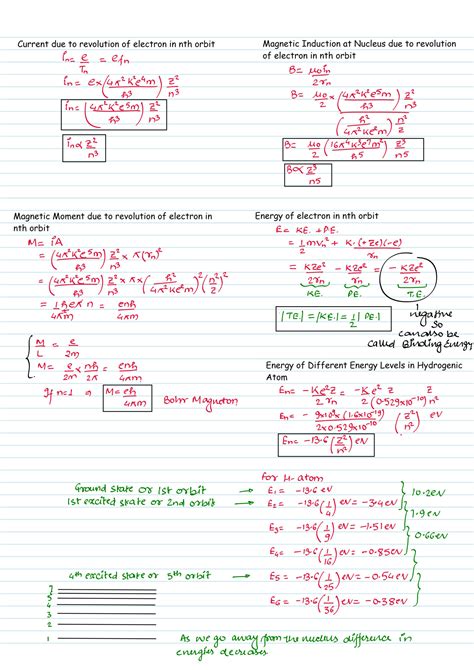 Current due to revolution of electron in nth orbit
in = e/Tn = efn
in = e×(4π²k²e⁴m/h³) z²/n³
in = (4π²k²e⁵m/h³) z²/n³
in ∝ z²/n³
Magnetic Induction at Nucleus due to revolution
of electron in nth orbit
B = μoin/2rn
B = μo/2 × (4π²k²e⁵m/h³) z²/n³
(h²/4π²ke²m) n²/z
B = μo/2 (16π⁴k³e⁷m²/h⁵) z³/n⁵
B ∝ z³/n⁵
Magnetic Moment due to revolution of electron in
nth orbit
M = iA
= (4π²k²e⁵m/h³) z²/n³ × π(rn)²
= (4π²k²e⁵m/h³) z²/n³ × π × (h²/4π²ke²m)² (n²/z)²
= 1heπn/4π²m = enh/4πm
M/L = e/2m
M = e/2m × nh/2π = enh/4πm
If n=1 → M = eh/4πm Bohr Magneton
Energy of electron in nth orbit
E = KE. + PE.
= 1/2 mvn² + K.(+ze)(-e)/rn
= kze²/2rn - kze²/rn = - kze²/2rn
KE. PE. T.E.
|TE.| = |KE.| = 1/2 |PE.|
negative
so
can also be
called Binding Energy
Energy of Different Energy Levels in Hydrogenic
Atom
En = -Ke²z/2rn = -Ke² z z/2(0.529×10⁻¹⁰) n²
En = - 9×10⁹×(1.6×10⁻¹⁹)/2×0.529×10⁻¹⁰ (z²/n²) eV
En = -13.6 (z²/n²) eV
for H-atom
Ground state or 1st orbit → E₁ = -13.6 eV
1st excited state or 2nd orbit → E₂ = -13.6(1/4) eV = -3.4 eV
10.2eV
1.9eV
E₃ = -13.6(1/9) eV = -1.51 eV
0.66eV
E₄ = -13.6(1/16) eV = -0.85 eV
4th excited state or 5th orbit → E₅ = -13.6(1/25) eV = -0.54 eV
E₆ = -13.6(1/36) eV = -0.38 eV
5
4
3
2
1
As we go away from the nucleus difference in
energies decreases